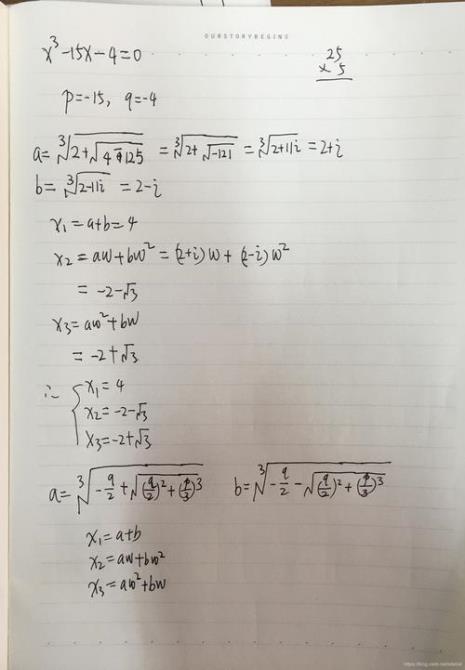 OURSTORYBEGINS
x³-15x-4=0
25
× 5
p=-15, q=-4
a=∛(2+√(4-125)) = ∛(2+√-121) = ∛(2+11i) = 2+i
b=∛(2-11i) = 2-i
x₁=a+b=4
x₂=aw+bw²=(2+i)w+(2-i)w²
=-2-√3
x₃=aw²+bw
=-2+√3
∴ { x₁=4
x₂=-2-√3
x₃=-2+√3
a=∛(-q/2+√((q/2)²+(p/3)³)) b=∛(-q/2-√((q/2)²+(p/3)³))
x₁=a+b
x₂=aw+bw²
x₃=aw²+bw